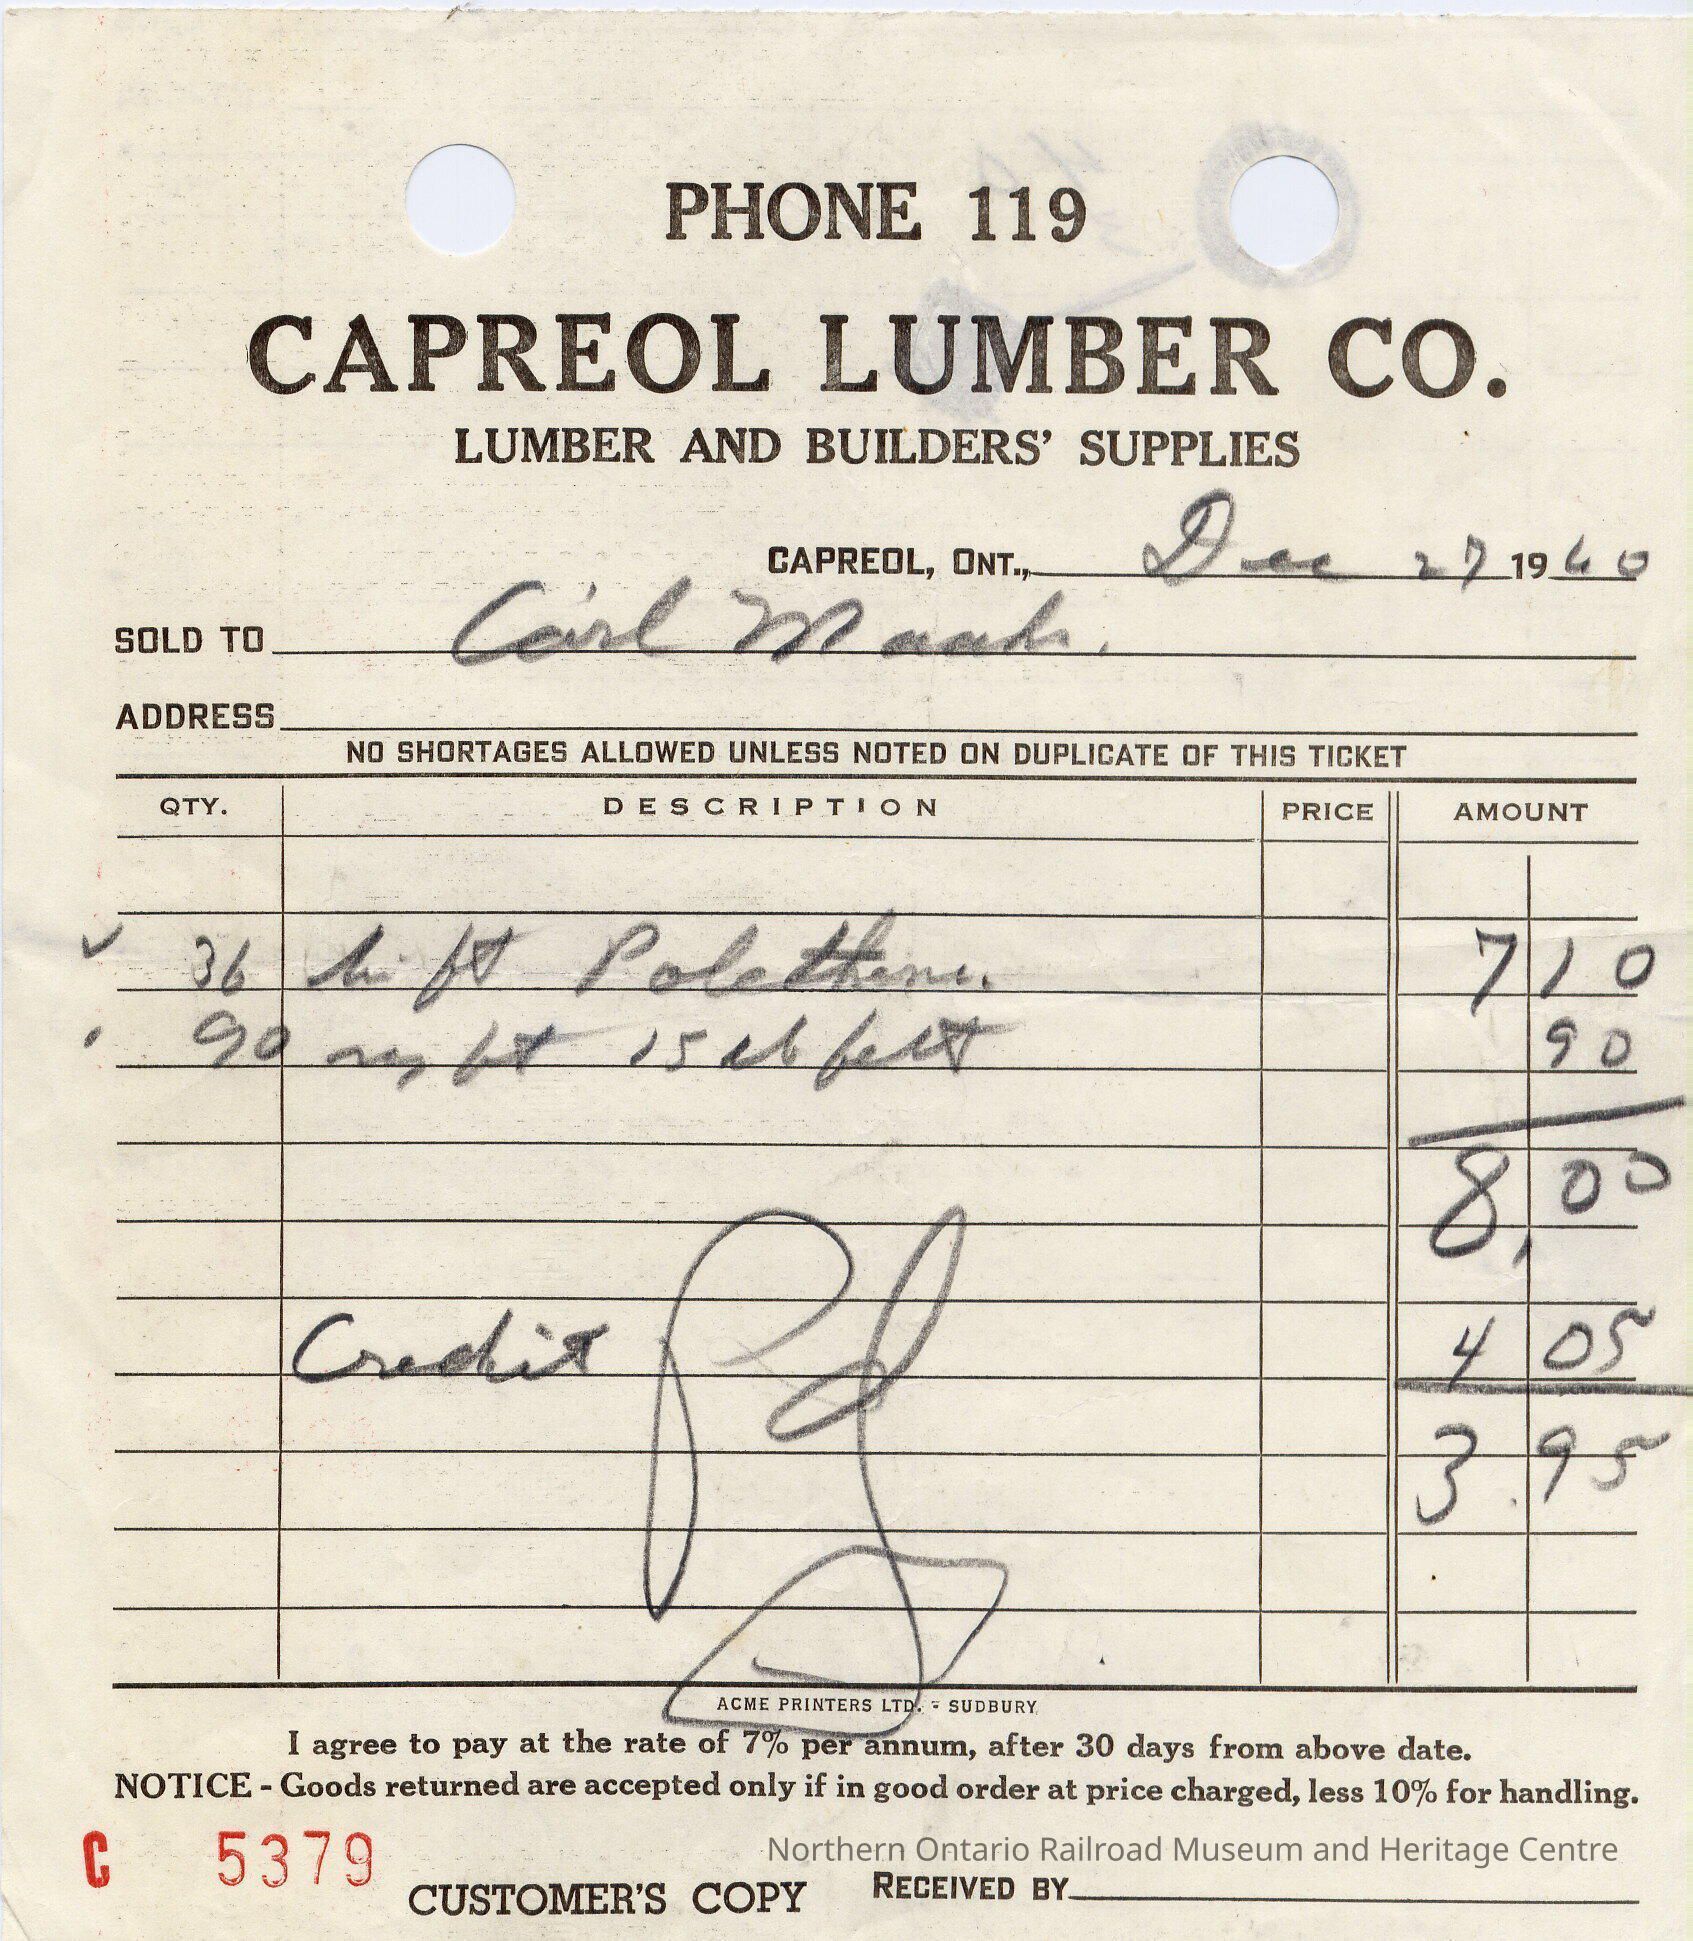 PHONE 119
CAPREOL LUMBER CO.
LUMBER AND BUILDERS' SUPPLIES
CAPREOL, ONT., Dec 27 1960
SOLD TO Carl
ADDRESS
NO SHORTAGES ALLOWED UNLESS NOTED ON DUPLICATE OF THIS TICKET
QTY. DESCRIPTION PRICE AMOUNT
36 li ft Polethene. 7 10
90 ft 15 lb felt 90
8.00
Credit 4 05
3.95
Pd
ACME PRINTERS LTD. - SUDBURY
I agree to pay at the rate of 7% per annum, after 30 days from above date.
NOTICE - Goods returned are accepted only if in good order at price charged, less 10% for handling.
C 5379
Northern Ontario Railroad Museum and Heritage Centre
CUSTOMER'S COPY RECEIVED BY